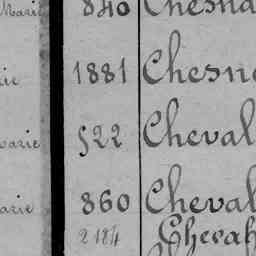 Marie 840 Chesna
rie 1881 Chesn
varie 522 Cheval
arie 860 Cheval
2184 Gherah